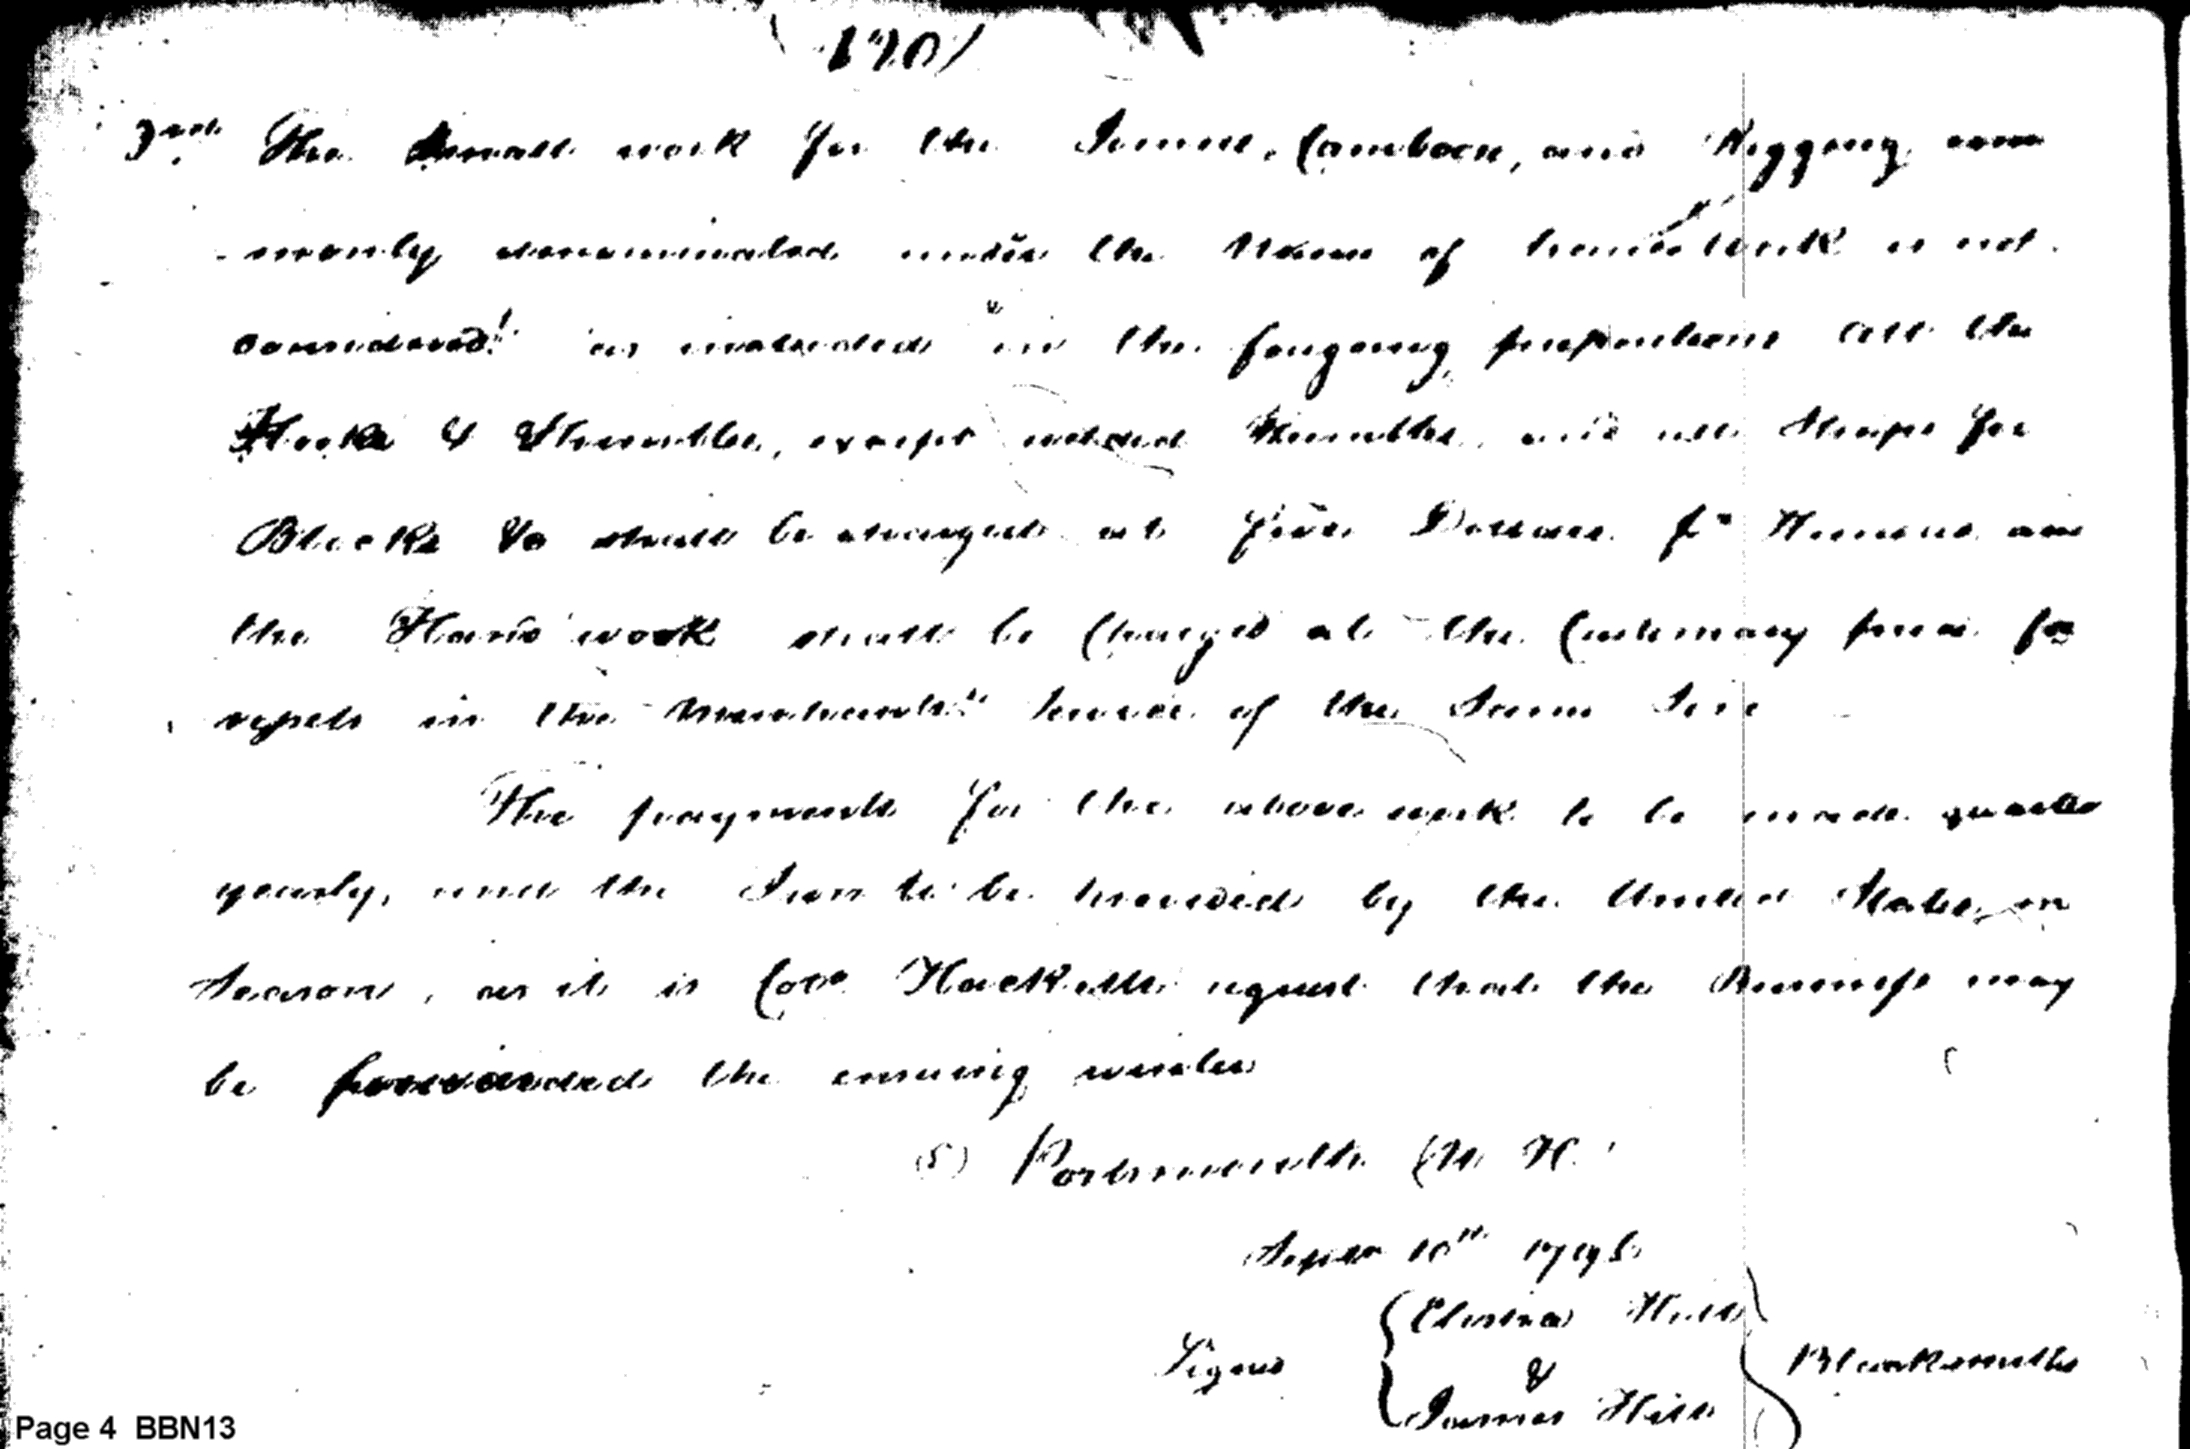 (120)
3rd. The Small work for the Joiner, Camboose, and Rigging com
-monly denominated under the Name of hand work is not
considered as included in the foregoing propositions All the
Hooks & Thimbles, except welded Thimbles, and all Straps for
Blocks &c shall be charged at five Dollars pr Hundred and
the Hand work shall be Charged at the Customary price for
vessels in the Merchants Service of the Same Size
The payments for the above work to be made quarter
yearly, and the Iron to be provided by the United States, in
Season, as it is Colo Hacketts request that the Business may
be forwarded the ensuing winter
(S) Portsmouth (N H.
Septr 10th 1795
Elisha Hill
Signed & Blacksmiths
James Hill
Page 4 BBN13